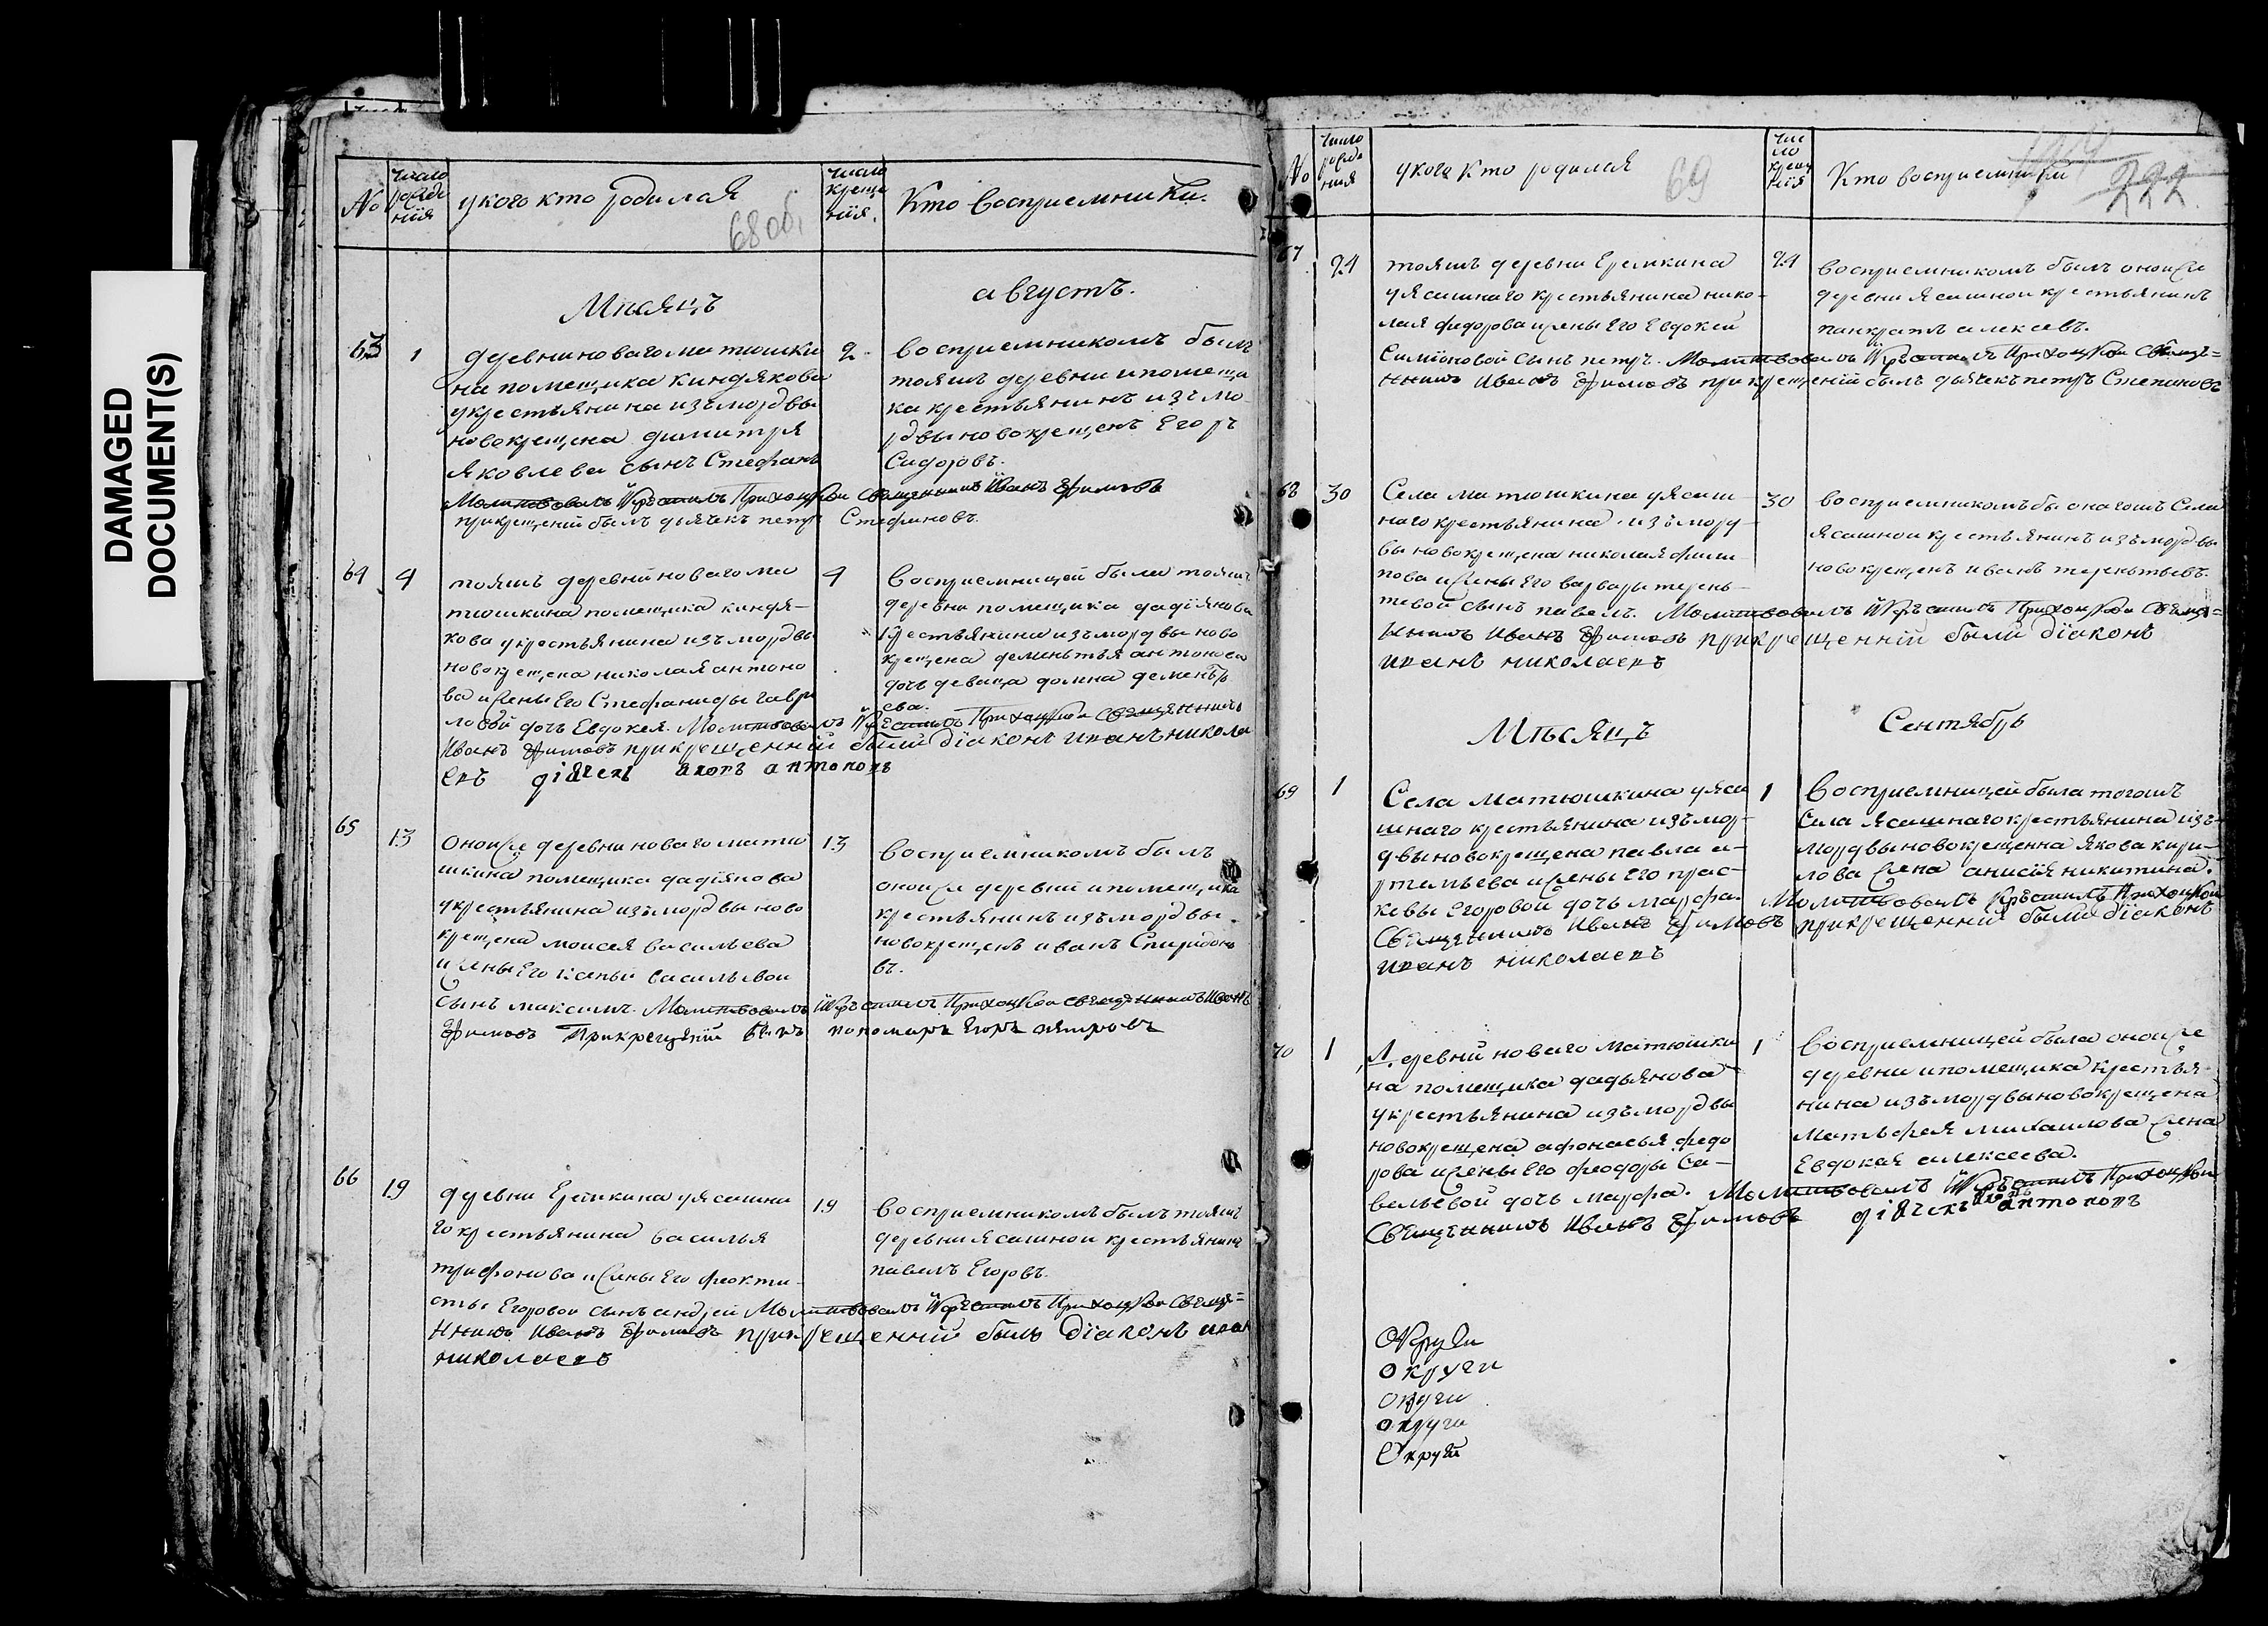 DAMAGED
DOCUMENT(S)
No
число рожде нiя
у кого кто родился
68 об.
число креще нiя.
Кто восприемники.
Мѣсяцъ
августъ.
63
1
деревни новаго матюшки
на помещика киндякова
у крестьянина изъ мордвы
новокрещена димитря
яковлева сынъ Стефанъ
2
восприемникомъ былъ
тояжъ деревни и помещи
ка крестьянинъ изъ мо
рдвы новокрещенъ Егоръ
Сидоровъ.
Молитвовалъ и крестилъ Приходской священникъ Иванъ Ефимовъ
при крещенiй былъ дьячекъ петръ Стефановъ.
64
4
тояжъ деревни новаго ма
тюшкина помещика киндя-
кова у крестьянина изъ мордвы
новокрещена николая антоно
ва и жены Его Стефаниды гаври
ловой дочь Евдокея. Молитвовалъ и крестилъ Приходской священникъ
Иванъ Ефимовъ при крещенной были дiаконъ иванъ никола
евъ дiячекъ яковъ антоновъ
4
восприемницей была тояжъ
деревни помещика дадiянова
крестьянина изъ мордвы ново
крещена деменьтья антонова
дочь девица домна деменьть
ева.
65
13
оноиже деревни новаго матю
шкина помещика дадiянова
у крестьянина изъ мордвы ново
крещена моисея васильева
и жены Его ксеньи васильевои
сынъ максимъ. Молитвовалъ и крестилъ Приходской священникъ Иванъ
Ефимовъ При крещенiи былъ пономарь Егоръ петровъ
13
восприемникомъ былъ
оноиже деревни и помещика
крестьянинъ изъ мордвы.
новокрещенъ иванъ Спиридоно
въ.
66
19
деревни Еремкина у ясашна
го крестьянина василья
трифонова и жены Его феокти
сты Егоровои сынъ андреи Молитвовалъ и крестилъ Приходской Свяще=
нникъ Иванъ Ефимовъ при крещенной былъ дiаконъ иванъ
николаевъ
19
восприемникомъ былъ тояжъ
деревни ясашнои крестьянинъ
павелъ Егоровъ.
No
число рожде нiя
у кого кто родился
69
чис ло креще нiя
Кто восприемники
222.
67
24
тояжъ деревни Еремкина
у ясашнаго крестьянина нико-
лая федорова и жены Его Евдокеи
Симiоновой сынъ петръ. Молитвовалъ и крестилъ Приходской Священ=
нникъ Иванъ Ефимовъ при крещенiй былъ дьячекъ петръ Степановъ
24
восприемникомъ былъ оноиже
деревни ясашнои крестьянинъ
панкратъ алексевъ.
68
30
Села матюшкина у ясаш-
наго крестьянина изъ морд-
вы новокрещена николая фили-
пова и жены Его варвары терень-
тевой сынъ павелъ. Молитвовалъ и крестилъ Приходской Свяще=
нникъ Иванъ Ефимовъ при крещенной были дiаконъ
иванъ николаевъ
30
восприемникомъ бы онагожъ Села
ясашнои крестьянинъ изъ мордвы
новокрещенъ иванъ терентьевъ.
Мѣсяцъ
Сентябрь
69
1
Села матюшкина у яса
шнаго крестьянина изъ мор-
двы новокрещена павла а-
ртемьева и жены Его прас-
ковы Егоровой дочь марфа. Молитвовалъ и крестилъ Приходской
Священникъ Иванъ Ефимовъ при крещенной были дiаконъ
иванъ николаевъ
1
восприемницей была тогожъ
Села ясашнаго крестьянина изъ-
мордвы новокрещенна якова кири-
лова жена анисiя никитина.
70
1
Деревни новаго матюшки
на помещика дадьянова
у крестьянина изъ мордвы
новокрещена афонасья федо
рова и жены Его феодоры Са-
вельевой дочь марфа. Молитвовалъ и крестилъ Приходской
Священникъ Иванъ Ефимовъ дiячекъ яковъ антоновъ
1
восприемницей была оноиже
деревни и помещика крестья-
нина изъ мордвы новокрещена
матьфея михаилова жена
Евдокея алексеева.
Округи
округи
округи
округи
Округи